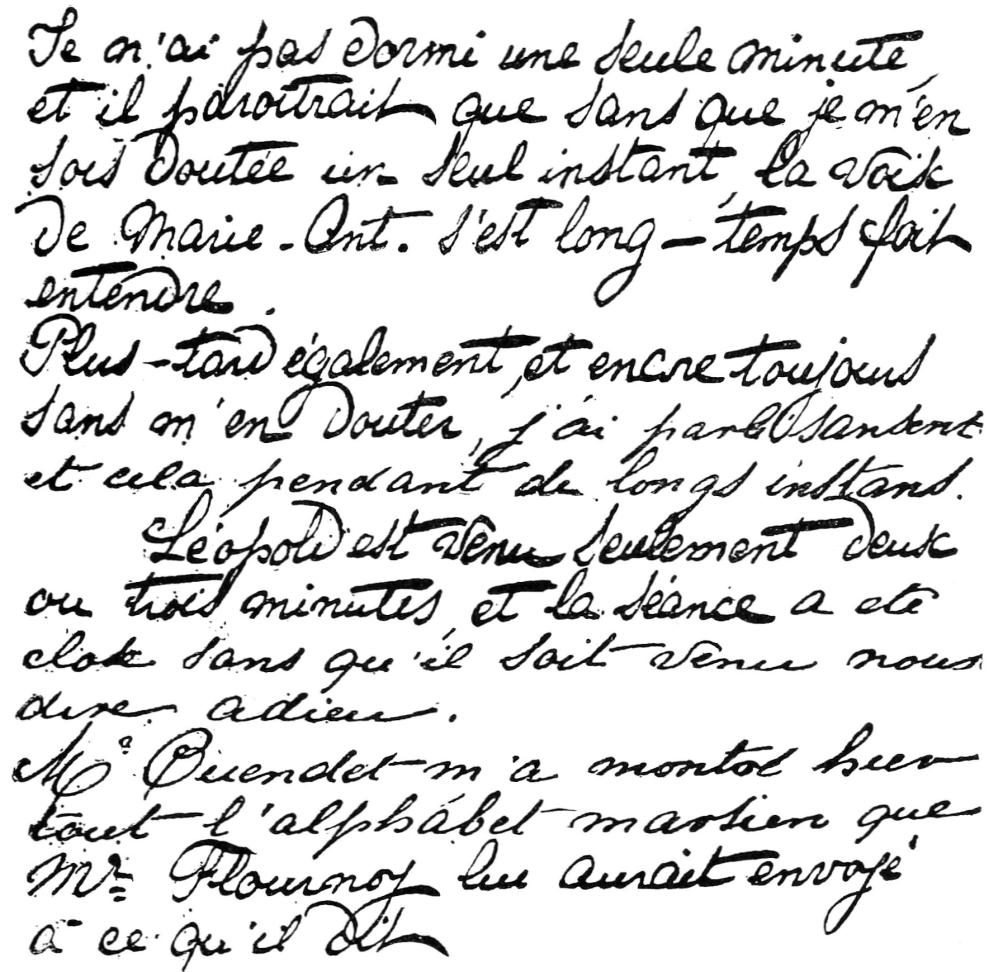 Je n'ai pas dormi une seule minute,
et il paroîtrait que sans que je m'en
sois doutée un seul instant, la voix
de Marie-Ant. s'est long-temps fait
entendre.
Plus-tard également, et encore toujours
sans m'en douter, j'ai parlé sanscrit
et cela pendant de longs instans.
Léopold est venu seulement deux
ou trois minutes, et la séance a été
close sans qu'il soit venu nous
dire adieu.
Mr Cuendet m'a montré hier
tout l'alphabet martien que
Mr. Flournoy lui aurait envoyé
à ce qu'il dit